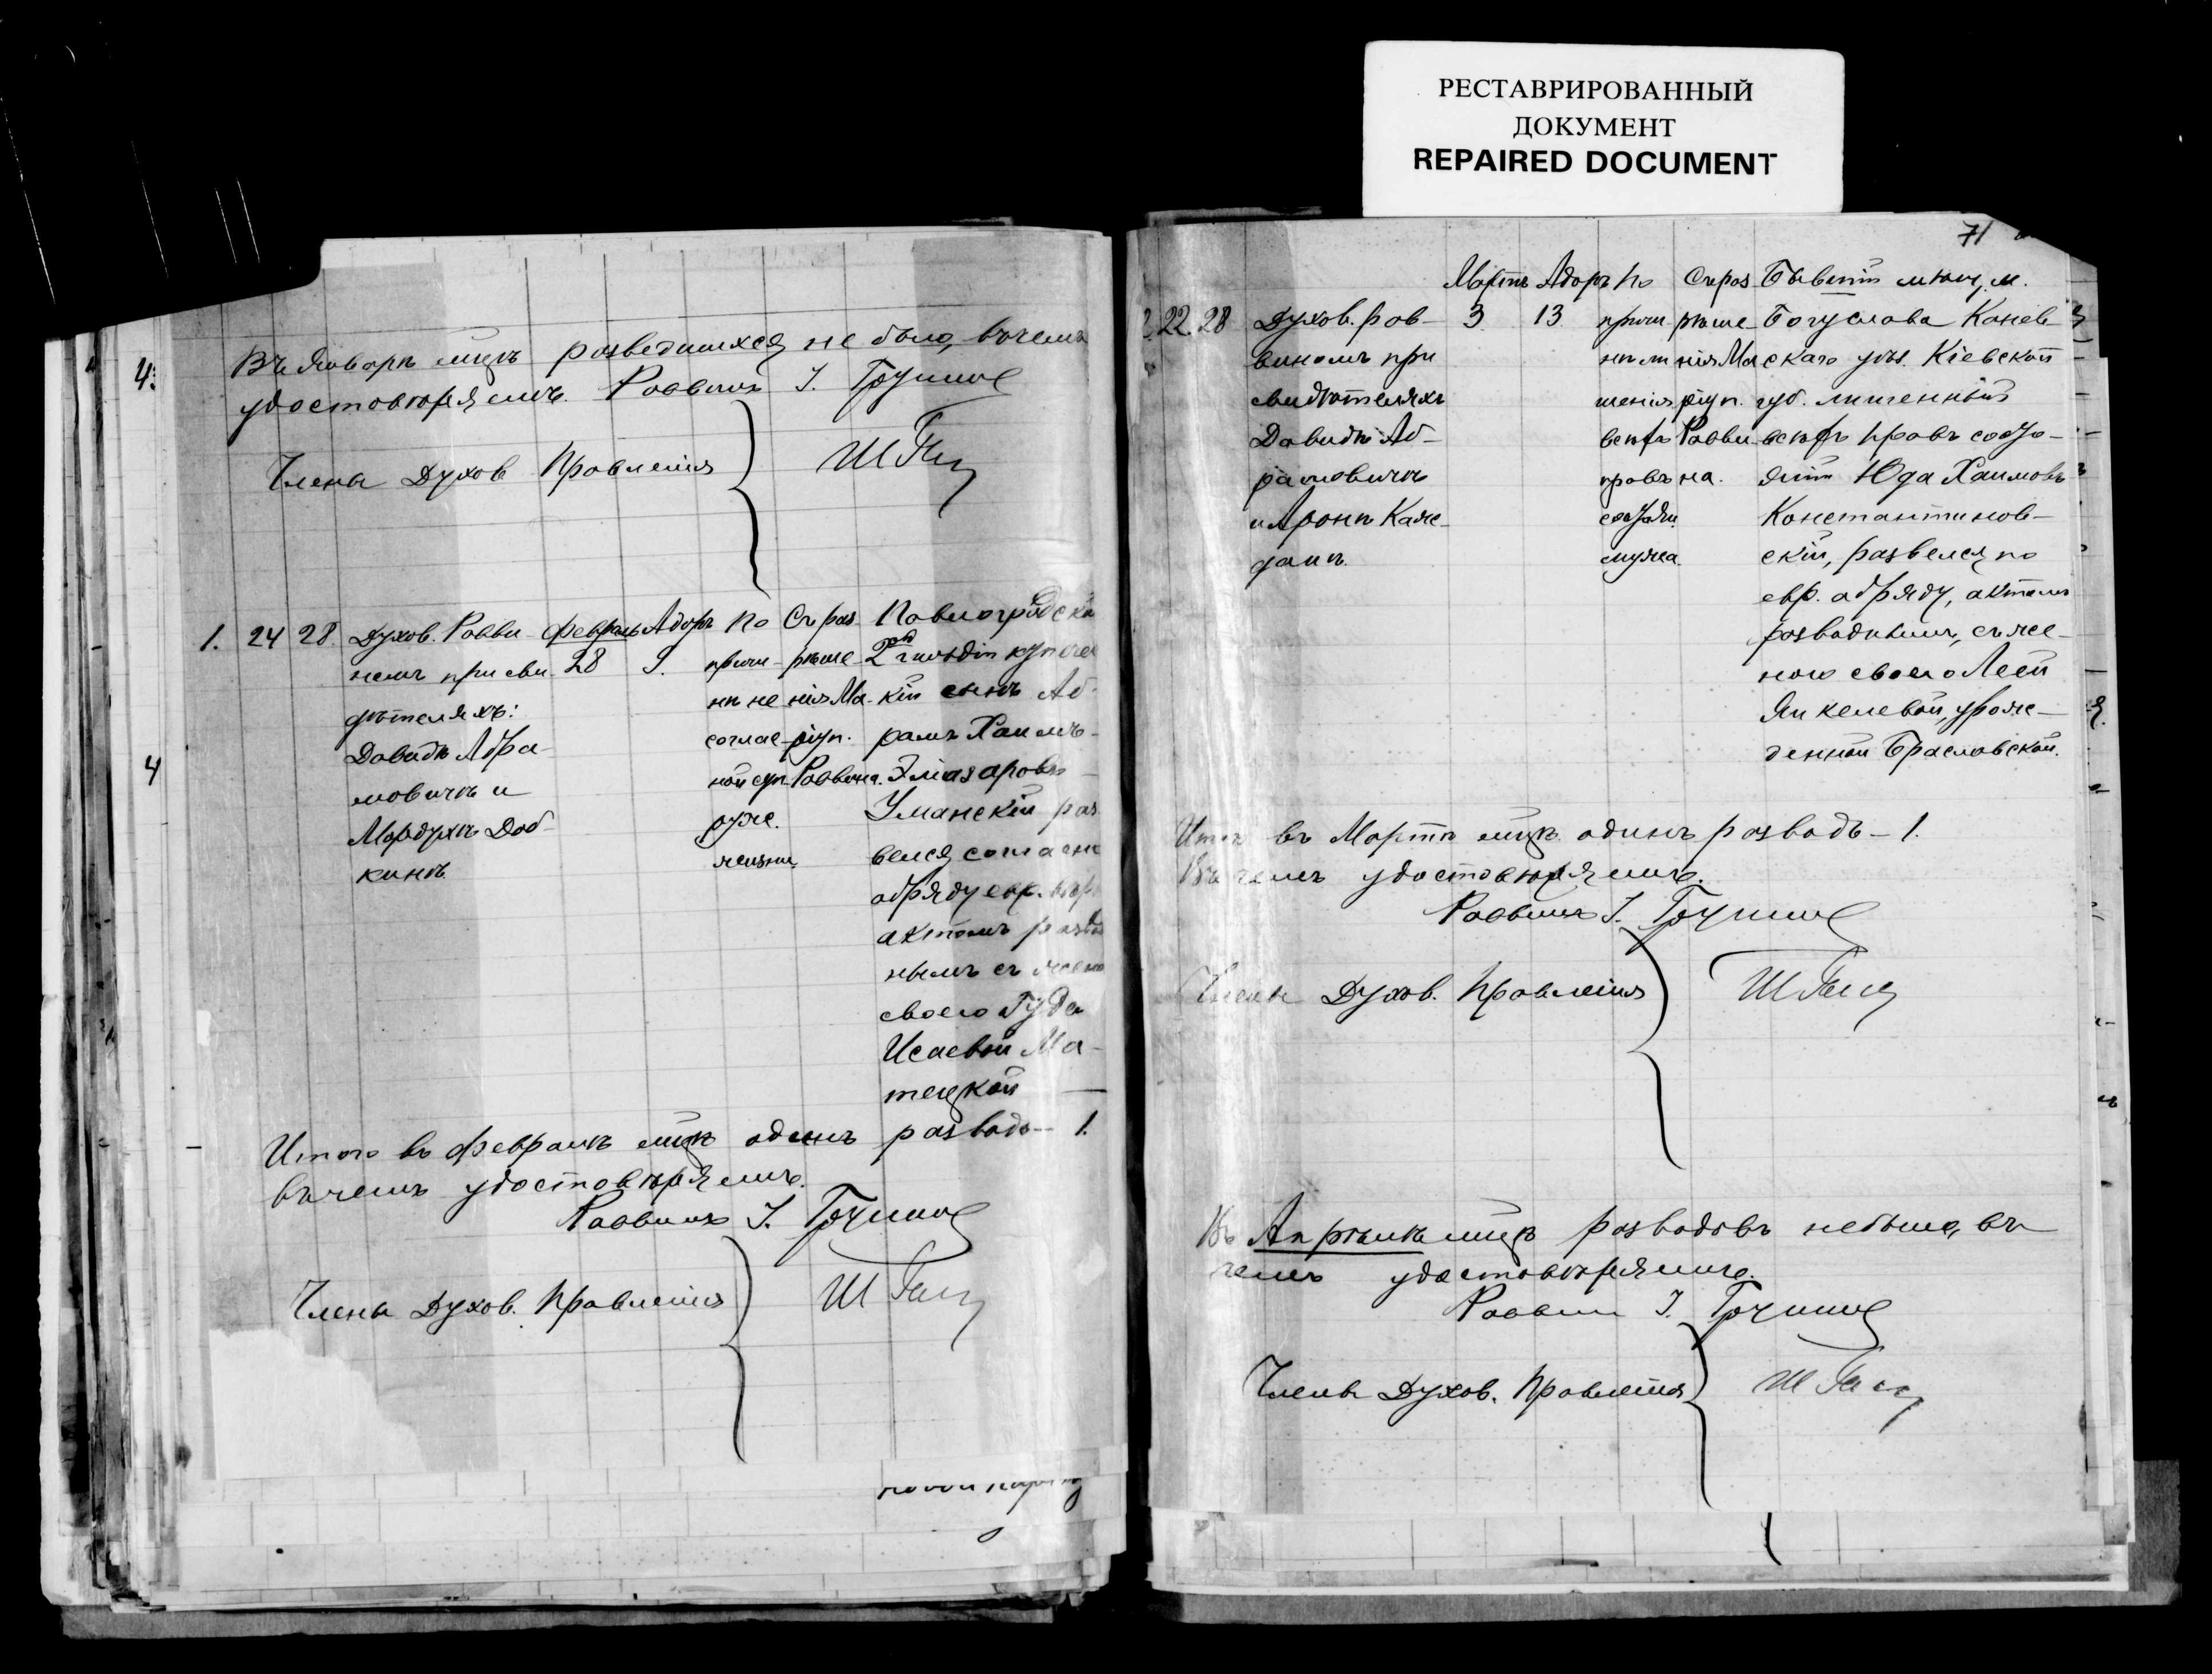 РЕСТАВРИРОВАННЫЙ
ДОКУМЕНТ
REPAIRED DOCUMENT
4.
Въ Январѣ мцѣ разведшихся не было, въ чемъ
удостовѣряемъ. Раввинъ І.
Члены Духов Правленія
1. 24 28. Духов. Равви- Февраль Адоръ По Съ раз- Павлоградскі
номъ при сви- 28 9. причи- рѣше- 2ой гильдіи купече
дѣтеляхъ: нѣ не- нія Ма- кій сынъ Аб-
Давидѣ Абра- соглас- гун. рамъ Хаимъ-
4
мовичѣ и ной суп- Раввина. Эліазаровъ
Мордухѣ Доб- руже. Уманскій раз
кинѣ. жизни. велся согласн
обряду евр. вѣр
актомъ развод
нымъ съ женою
своею Гуда
Исаевой Ма-
тецкой
Итого въ Февралѣ мцѣ одинъ разводъ — 1.
въ чемъ удостовѣряемъ.
Раввинъ І.
Члены Духов. Правленія
71
Мартъ Адоръ По Съ раз- Бывшій мѣщ. м.
2. 22. 28 Духов. рав- 3 13 причи- рѣше- Богуслава Канев
виномъ при нѣ ли- нія Ма- скаго уѣз. Кіевской
свидѣтеляхъ шенія гун. губ. лишенный
Давидѣ Аб- всѣхъ Равви- всѣхъ правъ состо-
рамовичѣ правъ на. яній Юда Хаимовъ
и Аронѣ Каж- состоян. Константинов-
данѣ. мужа. скій, развелся по
евр. обряду, актомъ
разводнымъ, съ же-
ною своею Леей
Янкелевой, урож-
денной Браславской.
Итого въ Мартѣ мцѣ одинъ разводъ — 1.
Въ чемъ удостовѣряемъ.
Раввинъ І.
Члены Духов. Правленія
Въ Апрѣлѣ мцѣ разводовъ не было, въ
чемъ удостовѣряемъ.
Раввин І.
Члены Духов. Правленія